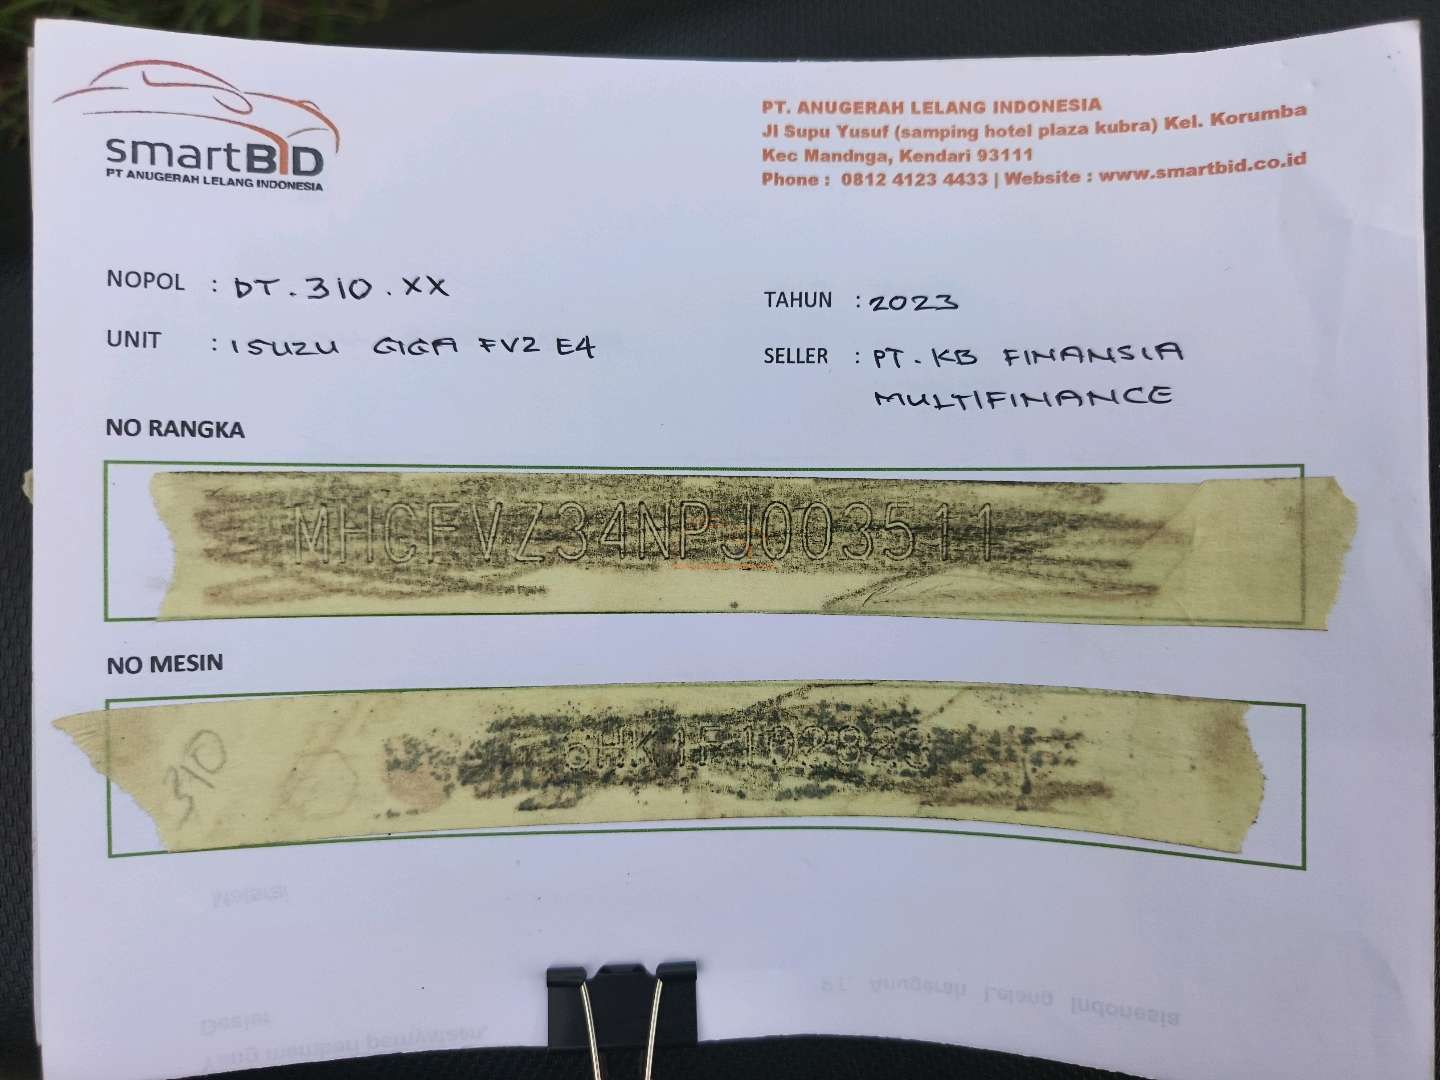 smartBID
PT ANUGERAH LELANG INDONESIA
PT. ANUGERAH LELANG INDONESIA
Jl Supu Yusuf (samping hotel plaza kubra) Kel. Korumba
Kec Mandnga, Kendari 93111
Phone : 0812 4123 4433 | Website : www.smartbid.co.id
NOPOL : DT. 310. XX
TAHUN : 2023
UNIT : ISUZU GIGA FVZ E4
SELLER : PT. KB FINANSIA
MULTIFINANCE
NO RANGKA
MHCFVZ34NPJ003511
NO MESIN
310
PT. Anugerah Lelang Indonesia